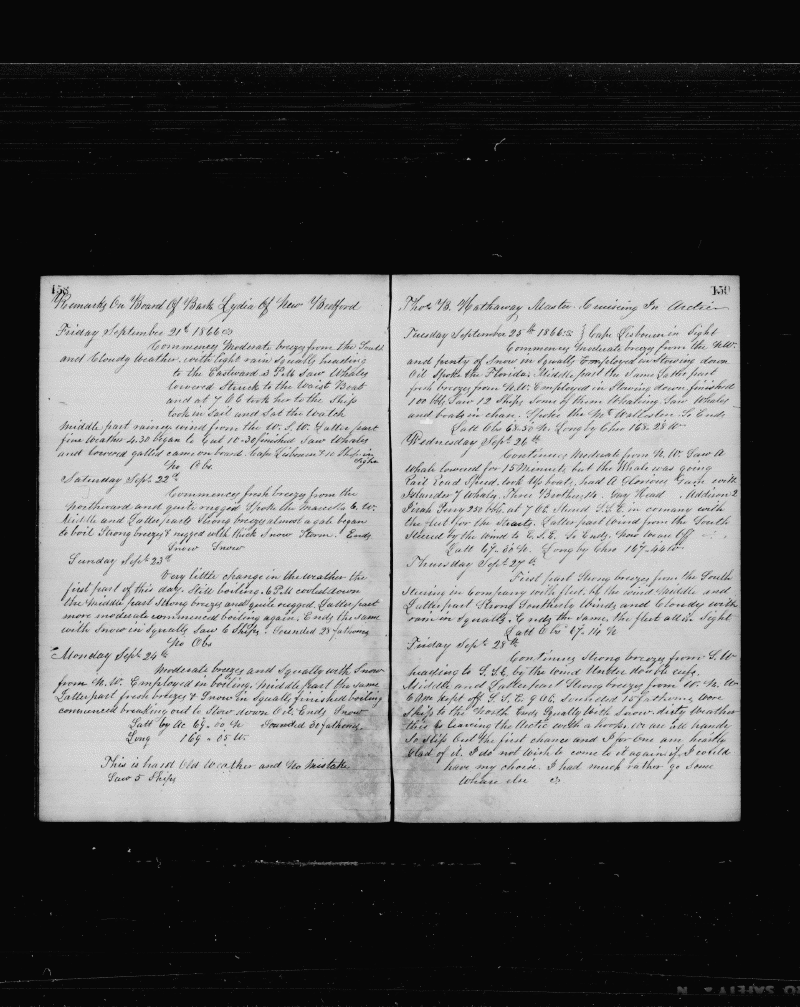 158
Remarks On Board Of Bark Lydia Of New Bedford
Friday September 21st 1866
Commences Moderate breezes from the South
and Cloudy Weather with light rain Squalls heading
to the Eastward 2 P.M. Saw Whales
lowered Struck to the Waist Boat
and at 7 Oc took her to the Ship
took in Sail and Sat the Watch
Middle part rainy wind from the W.S.W. Latter part
fine Weather 4.30 began to Cut 10-30 finished Saw Whales
and lowered gallied came on board. Cape Lisbourn & 10 Ships in
Sight
No Obs
Saturday Sept. 22nd
Commences fresh breezes from the
Northward and quite rugged Spoke the Marcella 6. W.
Middle and Latter parts Strong breezes almost a gale began
to boil Strong breezes & rugged with thick Snow Storm. Ends
Snow Snow
Sunday Sept 23rd
Very little change in the Weather the
first part of this day. Still boiling 6 P.M cooled down
the Middle part Strong breezes and quite rugged. Latter part
more moderate commenced boiling again. Ends the Same
with Snow in Squalls Saw 6 Ships. Sounded 28 fathoms
No Obs
Monday Sept. 24th
Moderate breezes and Squally with Snow
from N.W. Employed in boiling. Middle part the Same
Latter part fresh breezes & Snow in Squalls finished boiling
commenced breaking out to Stow down Oil. Ends Snow
Latt by Ac 69-00 N Sounded 30 fathoms
Long 169-05 W.
This is hard Old Weather and No Mistake
Saw 5 Ships
159
Thos. B. Hathaway Master. Cruising In Arctic
Tuesday September 25th 1866 Cape Lisbourn in Sight
Commences Moderate breezes from the N.W.
and plenty of Snow in Squalls Employed in Stowing down
Oil Spoke the Florida. Middle part the Same Latter part
fresh breezes from N.W. Employed in Stowing down finished
100 bbls Saw 12 Ships Some of them Whaling. Saw Whales
and boats in chase. Spoke the Wm Wollaston. So Ends
Latt Obs 68-50 N. Long by Chro 168-28 W
Wednesday Sept. 26th
Continues Moderate from N.W. Saw A
Whale lowered for 15 Minuts, but the Whale was going
Rail Road Speed. took Up boats, had A Glorious Gam with
Islander 7 Whales, Three Brothers 14. Gay Head Addison 2
Pirah Perry 250 bbls, at 7 Oc Stered S.S.E. in comany with
the fleet for the Straits. Latter part Wind from the South
Stered by the wind to E.S.E. So Ends. Now we are Off
Latt 67-50 N. Long by Chro 167-44
Thursday Sept. 27th
First part Strong breezes from the South
Stering in Company with fleet, by the wind Middle and
Latter part Strong Southerly Winds and Cloudy with
rain in Squalls. Ends the Same, the fleet all in Sight
Latt Obs 67-14 N
Friday Sept. 28th
Continues Strong breezes from S.W
heading to S.S.E. by the Wind Under double reefs.
Middle and Latter part Strong breezes from W.N.W
6 Am kept off S.S.E. 9 Oc. Sounded 18 fathoms wore
Ship to the North. Ends Squally With Snow. dirty Weather
this is leaving the Arctic with a hook, we are all hands
To Ship but the first chance and I for One am heartly
Glad of it. I do not Wish to come to it again if I could
have my choise. I had much rather go Some
Whare else